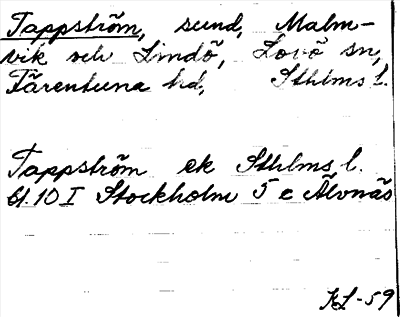 Tappström, sund, Malm-
vik och Lindö, Lovö sn,
Färentuna hd, Sthlms l.
Tappström ek Sthlms l.
bl. 10 I Stockholm 5 c Älvnäs
KL-59